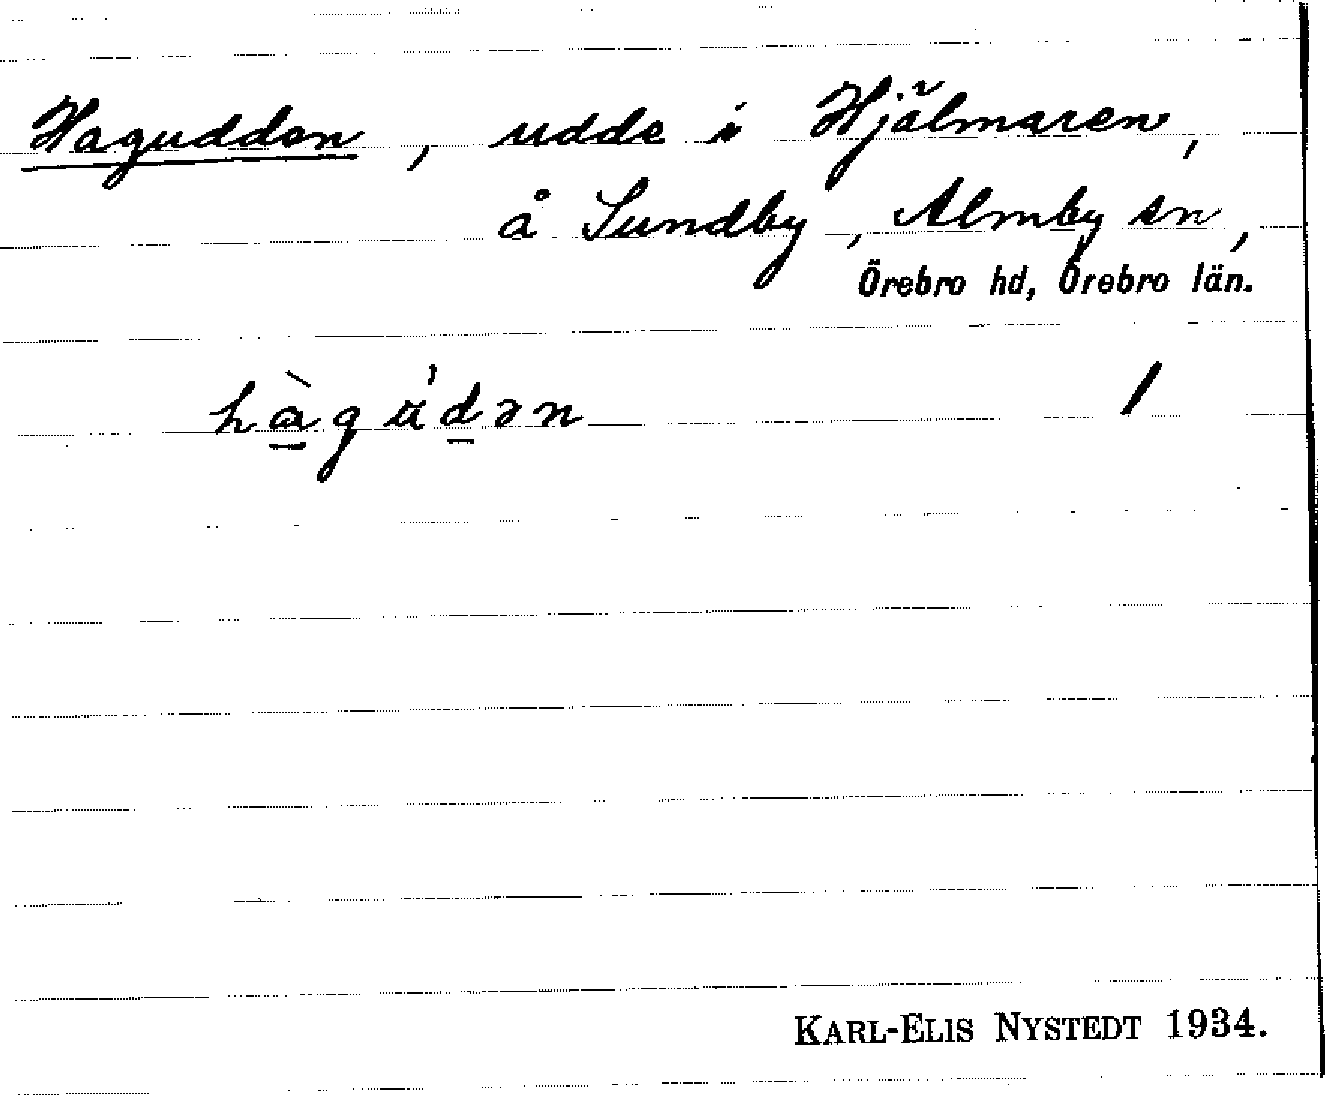 Hagudden, udde i Hjälmaren,
å Sundby, Almby sn,
Örebro hd, Örebro län.
hàgu̇́dən /
KARL-ELIS NYSTEDT 1934.